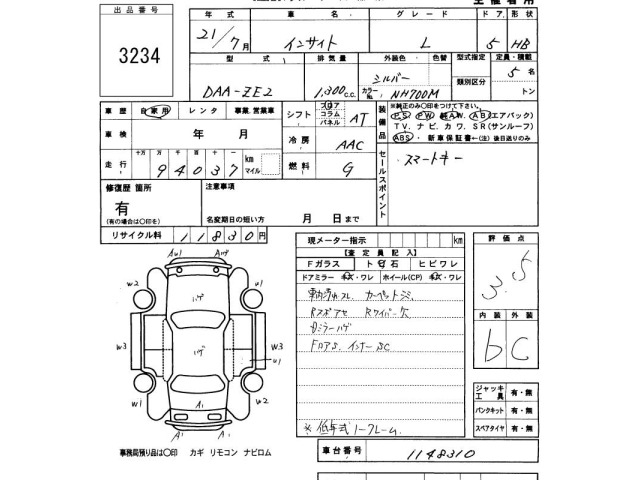 出品番号
3234
年式 車名 グレード ドア 形状
21/7月 インサイト L 5 HB
型式 排気量 外装色 色替 型式指定 定員・積載
DAA-ZE2 1,300c.c. シルバー カラーNo. NH700M 類別区分 5名 トン
車歴 自家用 レンタ 事業・営業車
シフト フロア コラム パネル AT
装備品
※純正のみ○印をつけて下さい。
PS PW AW AB(エアバック)
TV. ナビ. カワ. SR(サンルーフ)
ABS・新車保証書←(注)後日送りのみ
車検 年 月
冷房 AAC
走行 十万 万 千 百 十 一
94037 km マイル
燃料 G
セールスポイント
スマートキー
修復歴 箇所
有
(有の場合は○印を)
注意事項
名変期日の短い方 月 日まで
リサイクル料 11830円
現メーター指示 km
【査定員記入】
Fガラス トビ石 ヒビワレ
ドアミラー キズ・ワレ ホイール(CP) キズ・ワレ
カーペット
Rワイパー欠
ミラーハゲ
FロアS. インナーSC
評価点
3.5
内装 外装
b C
ジャッキ 工具 有・無
パンクキット 有・無
スペアタイヤ 有・無
AU1 A1
W2 W2
W3 W3
U1
W1 W2
A1
A1 A1
事務局預り品は○印 カギ リモコン ナビロム
車台番号 1148310